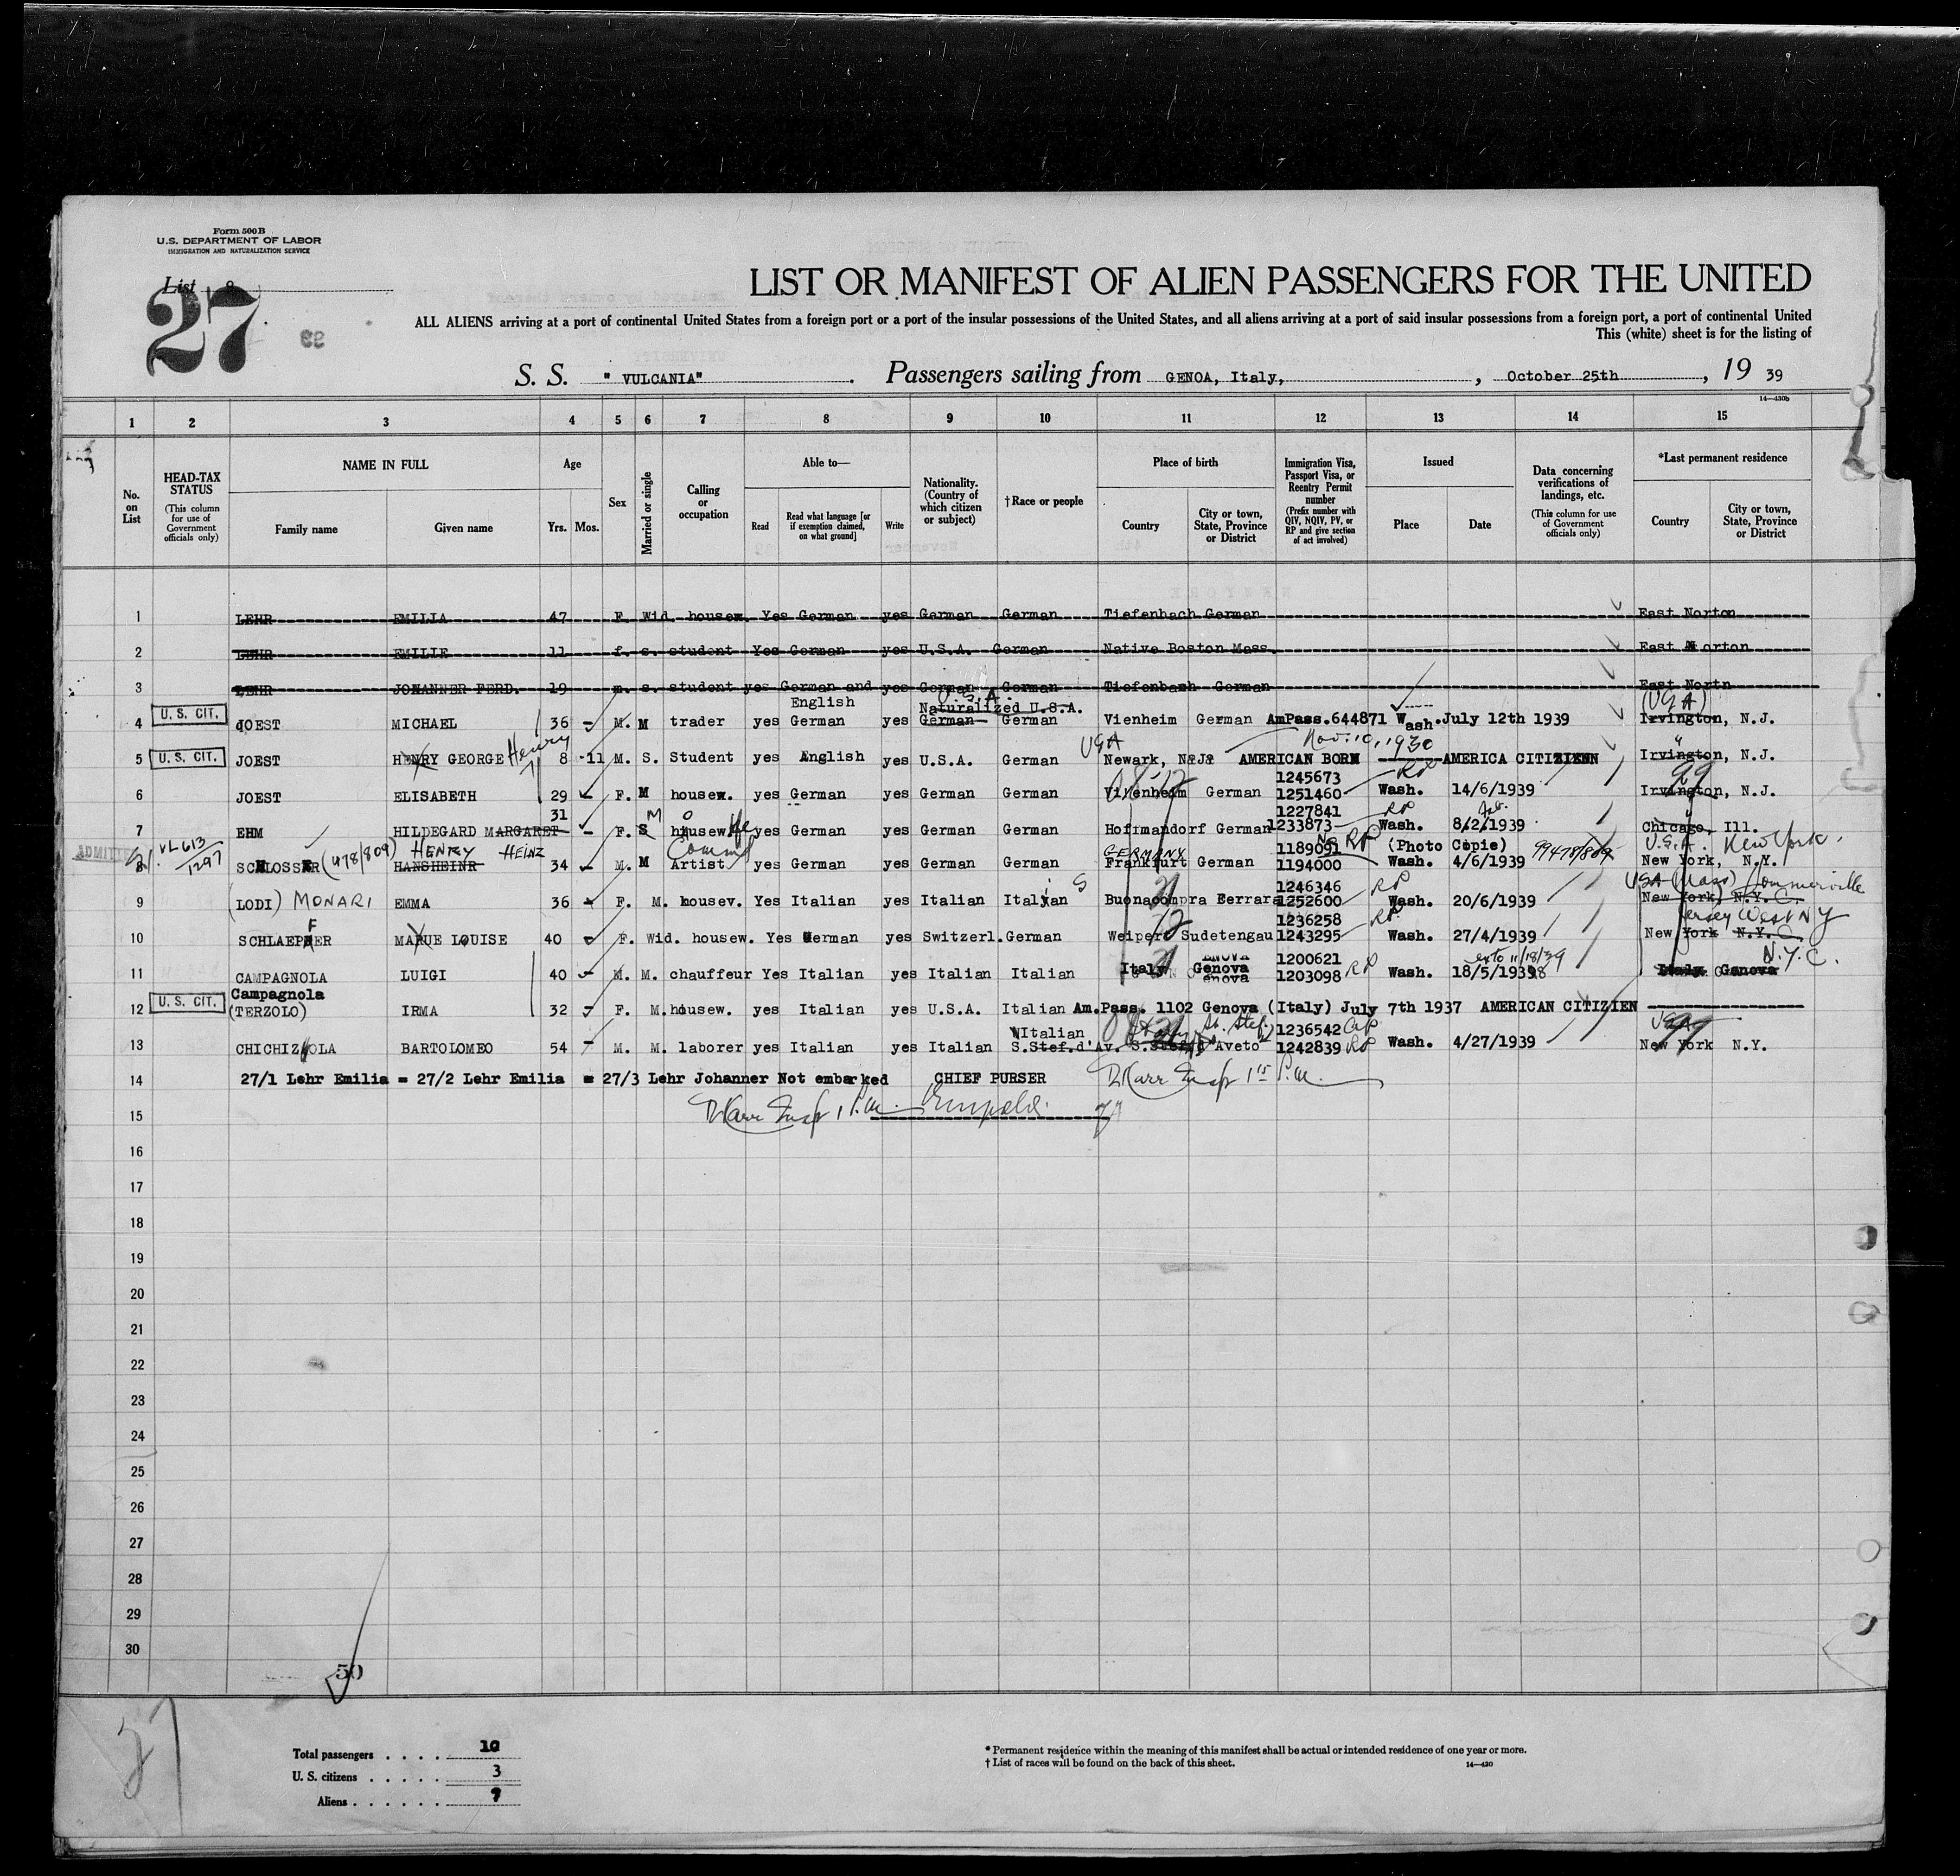 Form 500B
U.S. DEPARTMENT OF LABOR
IMMIGRATION AND NATURALIZATION SERVICE
List
27
LIST OR MANIFEST OF ALIEN PASSENGERS FOR THE UNITED
ALL ALIENS arriving at a port of continental United States from a foreign port or a port of the insular possessions of the United States, and all aliens arriving at a port of said insular possessions from a foreign port, a port of continental United
This (white) sheet is for the listing of
S. S. " VULCANIA" . Passengers sailing from GENOA, Italy, , October 25th , 19 39
14—430b
1 2 3 4 5 6 7 8 9 10 11 12 13 14 15
No. on List
HEAD-TAX STATUS (This column for use of Government officials only)
NAME IN FULL Family name Given name
Age Yrs. Mos.
Sex
Married or single
Calling or occupation
Able to— Read Read what language [or if exemption claimed, on what ground] Write
Nationality. (Country of which citizen or subject)
†Race or people
Place of birth Country City or town, State, Province or District
Immigration Visa, Passport Visa, or Reentry Permit number (Prefix number with QIV, NQIV, PV, or RP and give section of act involved)
Issued Place Date
Data concerning verifications of landings, etc. (This column for use of Government officials only)
*Last permanent residence Country City or town, State, Province or District
1 LEHR EMILIA 47 F. Wid. housew. Yes German yes German German Tiefenbach German East Norton
2 LEHR EMILIE 11 f. s. student Yes German yes U.S.A. German Native Boston Mass. East Norton
3 LEHR JOHANNER FERD. 19 m. s. student yes German and yes German German Tiefenbach German East Nortn
English U.S.A. Naturalized U.S.A. (USA)
4 U. S. CIT. JOEST MICHAEL 36 M. M trader yes German yes German German Vienheim German AmPass.644871 Wash. July 12th 1939 Irvington, N.J.
Henry USA Nov. 10, 1930
5 U. S. CIT. JOEST HENRY GEORGE 8 11 M. S. Student yes English yes U.S.A. German Newark, N.J. AMERICAN BORN AMERICA CITIZIENN Irvington, N.J.
1245673 RP 99
6 JOEST ELISABETH 29 F. M housew. yes German yes German German Vienheim German 1251460 Wash. 14/6/1939 Irvington, N.J.
31 M 1227841 RP Feb.
7 EHM HILDEGARD MARGARET F. S housew yes German yes German German Hoffmandorf German 1233873 Wash. 8/2/1939 Chicago, Ill.
ADMITTED VL613/1297 HENRY HEINZ GERMANY 1189091 RP (Photo Copie) U.S.A. New York.
8 SCHLOSSER (478/809) HANSHEINR 34 M. M Artist yes German yes German German Frankfurt German 1194000 Wash. 4/6/1939 99478/809 New York, N.Y.
1246346 RP USA (Mass) Sommerville
9 (LODI) MONARI EMMA 36 F. M. housev. Yes Italian yes Italian Italian S Buonacompra Ferrara 1252600 Wash. 20/6/1939 New York, N.Y. C.
F 1236258 RP Jersey West NY
10 SCHLAEPFER MARUE LOUISE 40 F. Wid. housew. Yes German yes Switzerl. German Weipert Sudetengau 1243295 Wash. 27/4/1939 New York N.Y.C.
1200621 ex to 11/18/39 N.Y.C.
11 CAMPAGNOLA LUIGI 40 M. M. chauffeur Yes Italian yes Italian Italian Italy Genova 1203098 RP Wash. 18/5/1938 Italy Genova
Campagnola
12 U. S. CIT. (TERZOLO) IRMA 32 F. M. housew. yes Italian yes U.S.A. Italian Am.Pass. 1102 Genova (Italy) July 7th 1937 AMERICAN CITIZIEN
Italian St. Stef. 1236542 USA 99
13 CHICHIZOLA BARTOLOMEO 54 M. M. laborer yes Italian yes Italian S.Stef.d'Av. S.Stef.d'Aveto 1242839 RP Wash. 4/27/1939 New York N.Y.
14 27/1 Lehr Emilia = 27/2 Lehr Emilia = 27/3 Lehr Johanner Not embarked CHIEF PURSER
15
16
17
18
19
20
21
22
23
24
25
26
27
28
29
30
50
27
Total passengers . . . . 10
U. S. citizens . . . . . 3
Aliens . . . . . . 7
* Permanent residence within the meaning of this manifest shall be actual or intended residence of one year or more.
† List of races will be found on the back of this sheet.
14—430